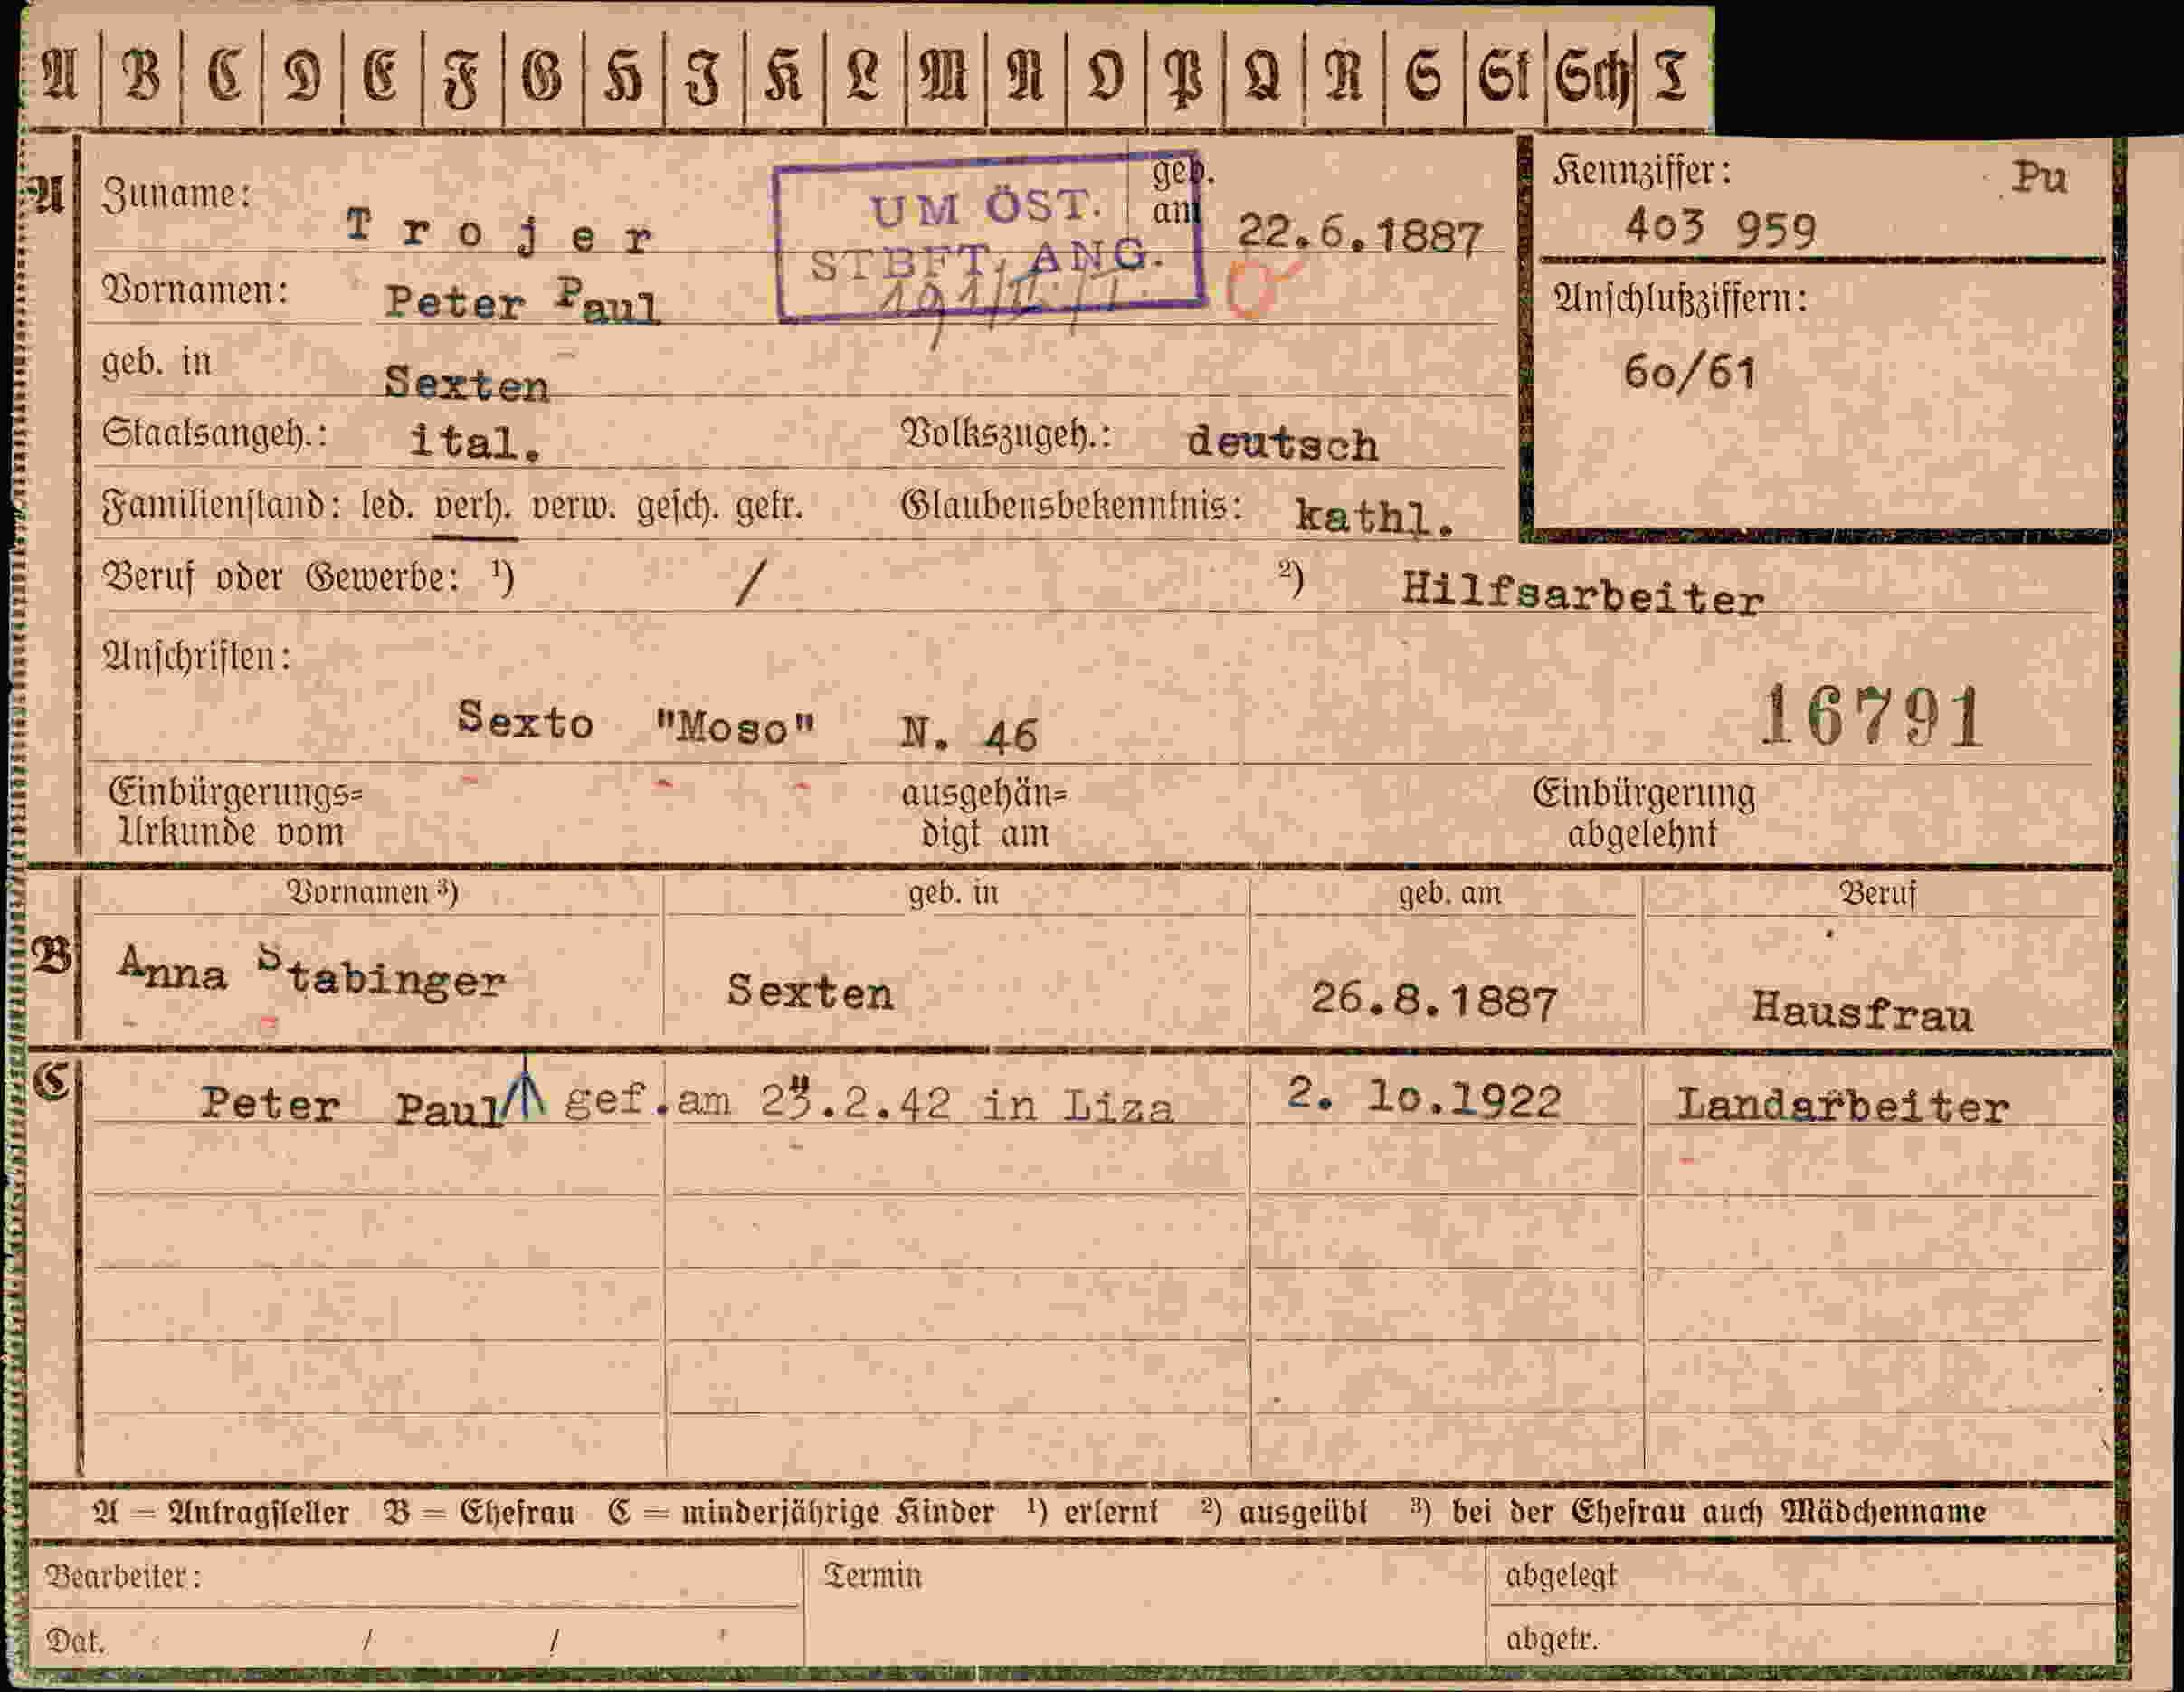 A B C D E F G H J K L M N O P Q R S St Sch T
A Zuname: Trojer geb. am 22.6.1887
UM ÖST.
STBFT. ANG.
Kennziffer: Pu
403 959
Vornamen: Peter Paul
Anschlußziffern:
60/61
geb. in Sexten
Staatsangeh.: ital. Volkszugeh.: deutsch
Familienstand: led. verh. verw. gesch. getr. Glaubensbekenntnis: kathl.
Beruf oder Gewerbe: ¹) / ²) Hilfsarbeiter
Anschriften:
Sexto "Moso" N. 46 16791
Einbürgerungs= ausgehän= Einbürgerung
Urkunde vom digt am abgelehnt
Vornamen ³) geb. in geb. am Beruf
B Anna Stabinger Sexten 26.8.1887 Hausfrau
C Peter Paul gef.am .2.42 in Liza 2. 10.1922 Landarbeiter
A = Antragsteller B = Ehefrau C = minderjährige Kinder ¹) erlernt ²) ausgeübt ³) bei der Ehefrau auch Mädchenname
Bearbeiter: Termin abgelegt
Dat. / / abgetr.